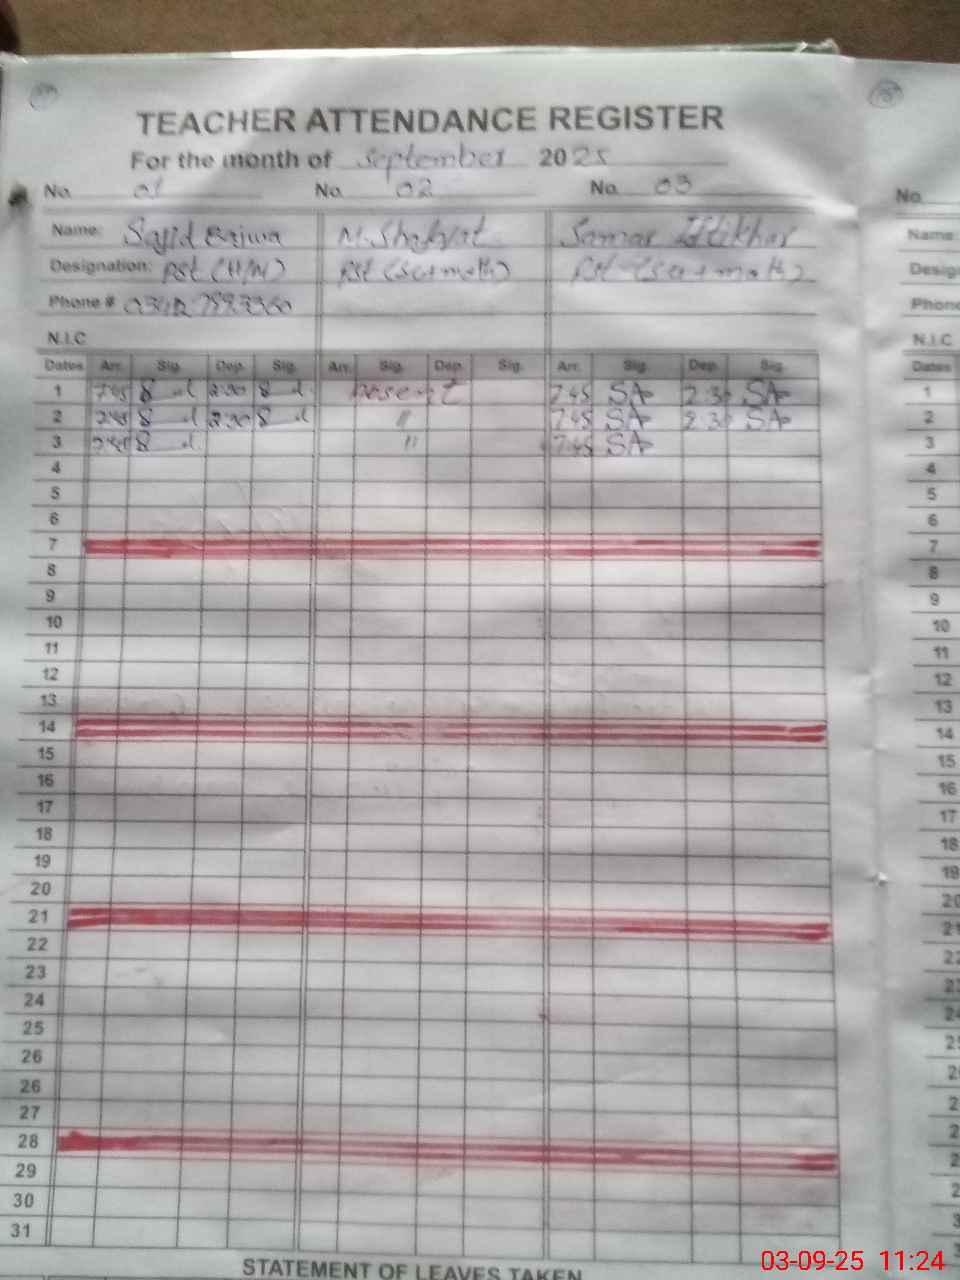 TEACHER ATTENDANCE REGISTER
For the month of September 2025
No. 01 No. 02 No. 03 No.
Name: Sajid Bajwa M. Shafqat Samar Iftikhar Name:
Designation: PST (H/M) PST (Sci+math) PST (Sci+math) Desig
Phone # Phone
N.I.C N.I.C
Dates Arr. Sig. Dep. Sig. Arr. Sig. Dep. Sig. Arr. Sig. Dep. Sig. Dates
1 7:45 2:30 7:45 SA 2:30 SA 1
2 7:45 2:30 " 7:45 SA 2:30 SA 2
3 7:45 " 7:45 SA 3
4 4
5 5
6 6
7 7
8 8
9 9
10 10
11 11
12 12
13 13
14 14
15 15
16 16
17 17
18 18
19 19
20 20
21 21
22 22
23 23
24 24
25 25
26
26
27
28
29
30
31
STATEMENT OF LEAVES TAKEN
03-09-25 11:24